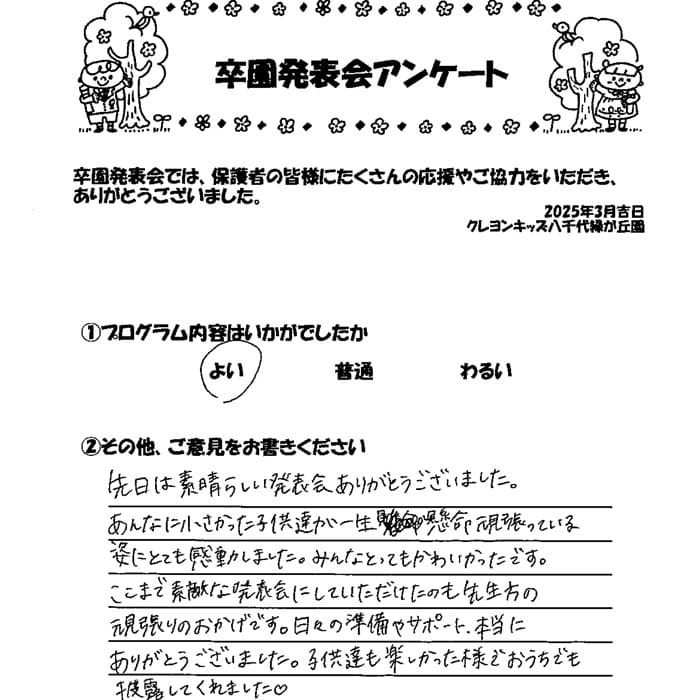 卒園発表会アンケート
卒園発表会では、保護者の皆様にたくさんの応援やご協力をいただき、
ありがとうございました。
2025年3月吉日
クレヨンキッズ八千代緑が丘園
①プログラム内容はいかがでしたか
よい 普通 わるい
②その他、ご意見をお書きください
先日は素晴らしい発表会ありがとうございました。
あんなに小さかった子供達が一生懸命頑張っている
姿にとても感動しました。みんなとってもかわいかったです。
ここまで素敵な発表会にしていただけたのも先生方の
頑張りのおかげです。日々の準備やサポート、本当に
ありがとうございました。子供達も楽しかった様でおうちでも
披露してくれました♡